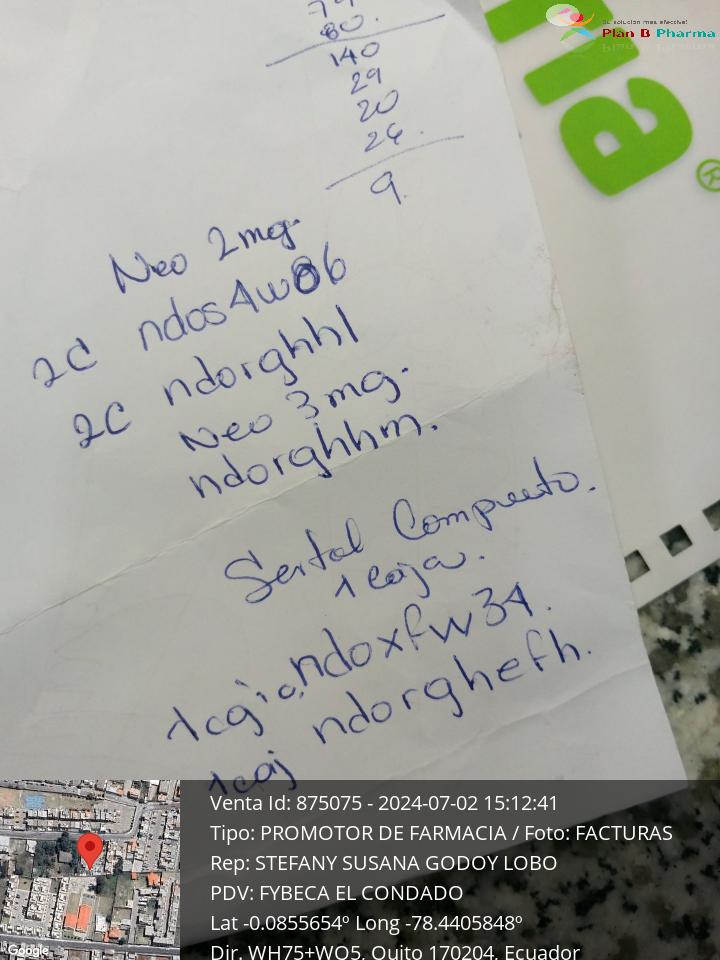 Su solución más efectiva!
Plan B Pharma
na
®
80.
140
29
20
26.
9.
Neo 2mg.
2C ndos4w86
2C ndorghhl
Neo 3mg.
ndorghhm.
Sertal Compuesto.
1 caja.
1caja ndoxfw34.
1caj ndorghefh.
Google
Venta Id: 875075 - 2024-07-02 15:12:41
Tipo: PROMOTOR DE FARMACIA / Foto: FACTURAS
Rep: STEFANY SUSANA GODOY LOBO
PDV: FYBECA EL CONDADO
Lat -0.0855654º Long -78.4405848º
Dir. WH75+WQ5, Quito 170204, Ecuador